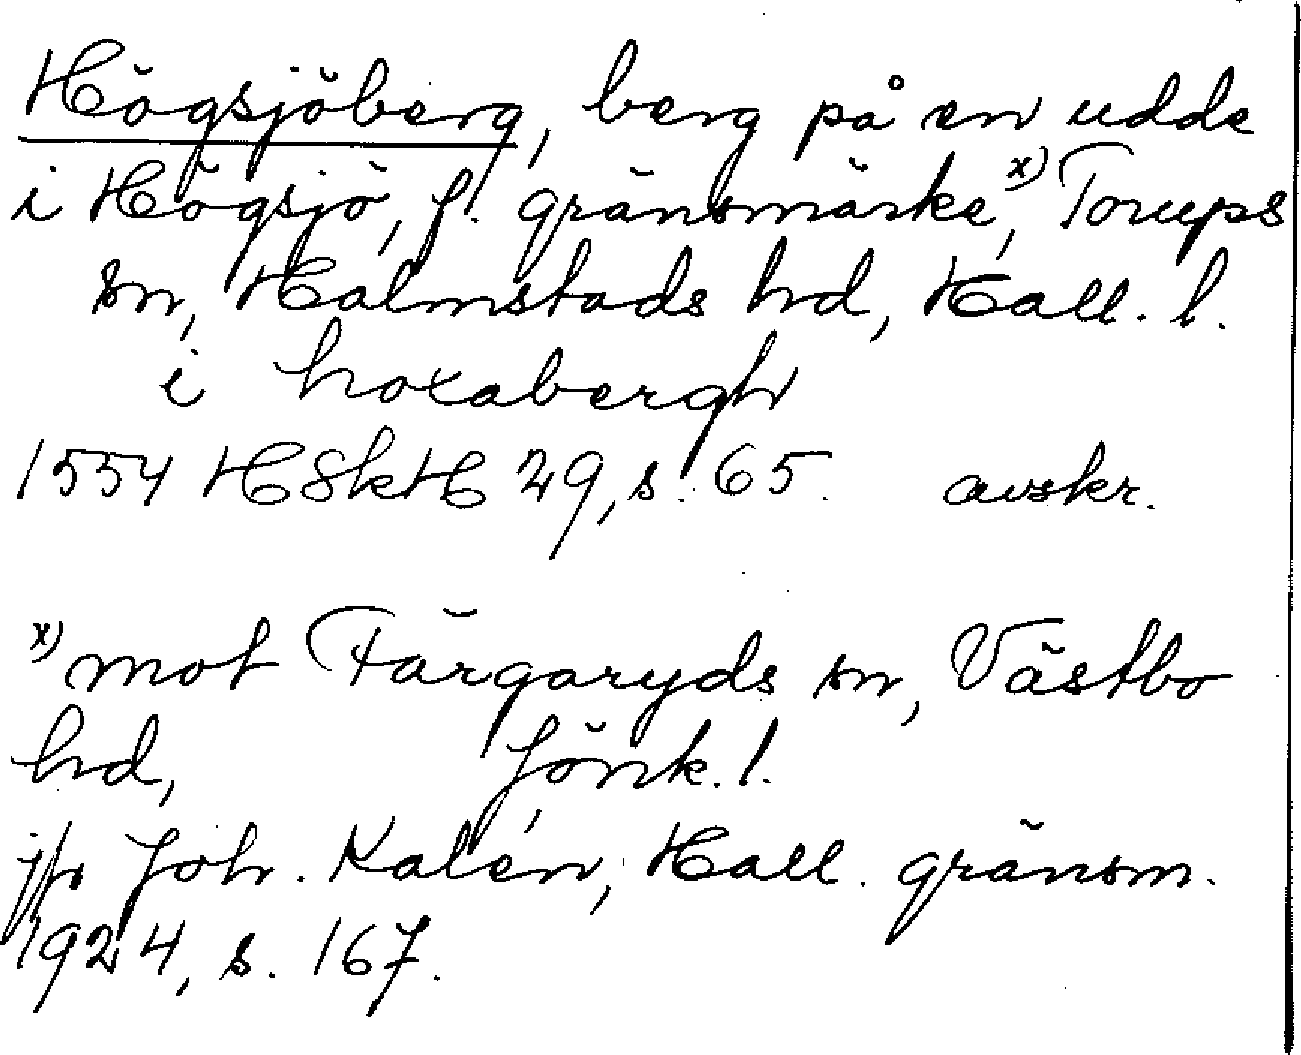 Högsjöberg, berg på en udde
i Högsjö, f. gränsmärke, x) Torups
sn, Halmstads hd, Hall. l.
i hoxabergh
1554 HSkH 29, s. 65. avskr.
x) mot Färgaryds sn, Västbo
hd, Jönk. l.
jfr Joh. Kalén, Hall. gränsm.
1924, s. 167.